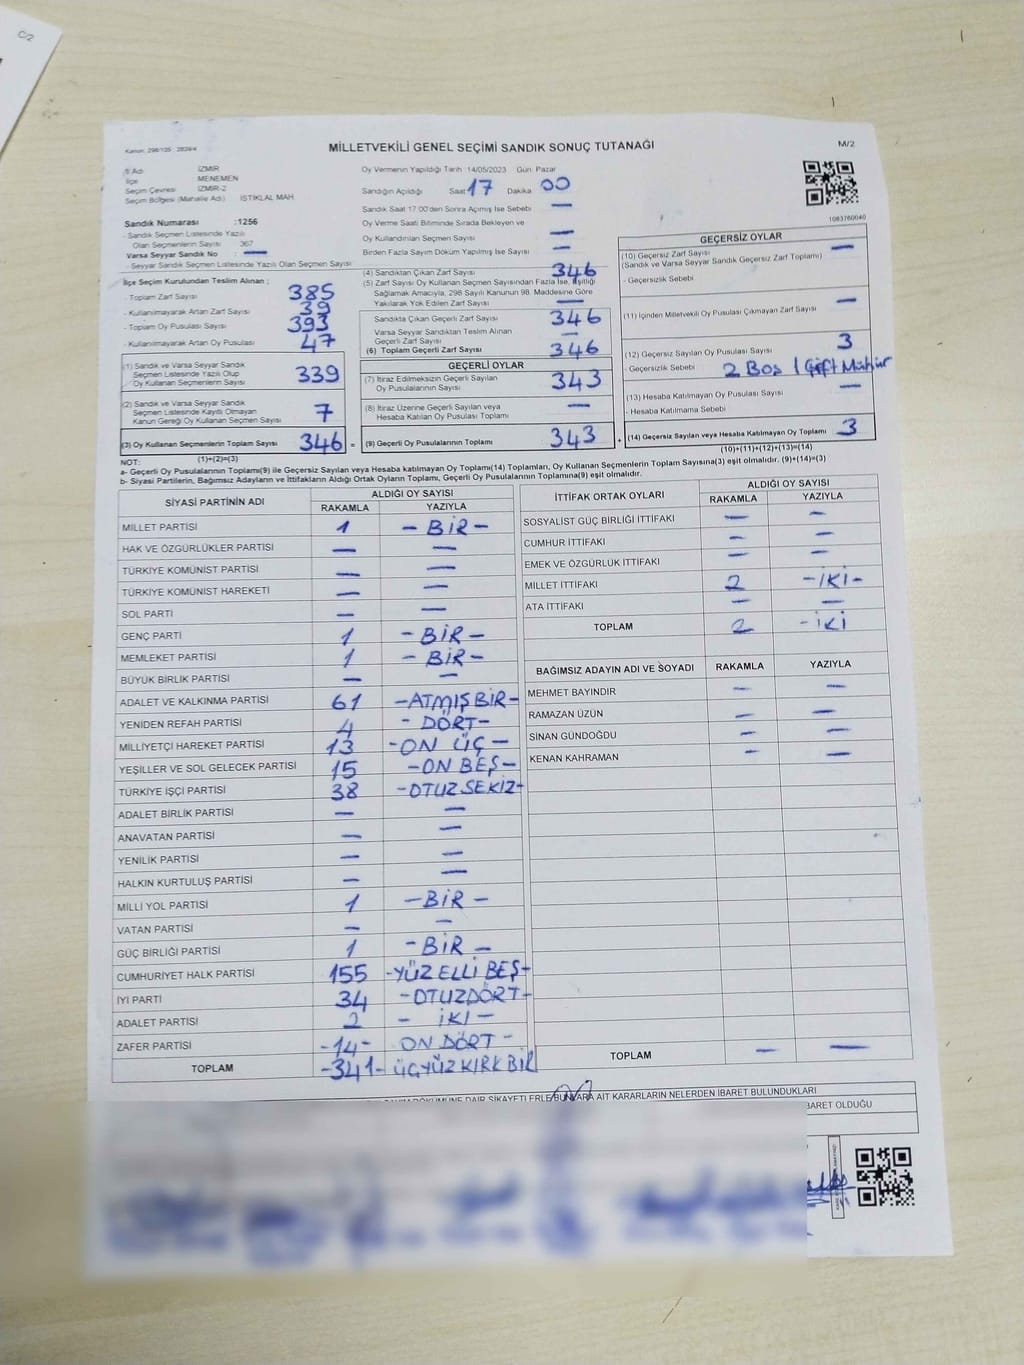 C/2
Kanun: 298/105 2839/4
MİLLETVEKİLİ GENEL SEÇİMİ SANDIK SONUÇ TUTANAĞI
M/2
İl Adı İZMİR
İlçe MENEMEN
Seçim Çevresi İZMİR-2
Seçim Bölgesi (Mahalle Adı) İSTİKLAL MAH
Sandık Numarası :1256
- Sandık Seçmen Listesinde Yazılı
Olan Seçmenlerin Sayısı 367
Varsa Seyyar Sandık No : —
- Seyyar Sandık Seçmen Listesinde Yazılı Olan Seçmen Sayısı
İlçe Seçim Kurulundan Teslim Alınan ;
- Toplam Zarf Sayısı 385
- Kullanılmayarak Artan Zarf Sayısı 39
- Toplam Oy Pusulası Sayısı 393
- Kullanılmayarak Artan Oy Pusulası 47
(1) Sandık ve Varsa Seyyar Sandık
Seçmen Listesinde Yazılı Olup
Oy Kullanan Seçmenlerin Sayısı 339
(2) Sandık ve Varsa Seyyar Sandık
Seçmen Listesinde Kayıtlı Olmayan
Kanun Gereği Oy Kullanan Seçmen Sayısı 7
(3) Oy Kullanan Seçmenlerin Toplam Sayısı 346 =
(1)+(2)=(3)
Oy Vermenin Yapıldığı Tarih 14/05/2023 Gün: Pazar
Sandığın Açıldığı Saat 17 Dakika 00
Sandık Saat 17:00'den Sonra Açımış İse Sebebi —
Oy Verme Saati Bitiminde Sırada Bekleyen ve
Oy Kullandırılan Seçmen Sayısı —
Birden Fazla Sayım Döküm Yapılmış İse Sayısı —
(4) Sandıktan Çıkan Zarf Sayısı 346
(5) Zarf Sayısı Oy Kullanan Seçmen Sayısından Fazla İse, Eşitliği
Sağlamak Amacıyla, 298 Sayılı Kanunun 98. Maddesine Göre
Yakılarak Yok Edilen Zarf Sayısı —
Sandıkta Çıkan Geçerli Zarf Sayısı 346
Varsa Seyyar Sandıktan Teslim Alınan
Geçerli Zarf Sayısı —
(6) Toplam Geçerli Zarf Sayısı 346
GEÇERLİ OYLAR
(7) İtiraz Edilmeksizin Geçerli Sayılan
Oy Pusulalarının Sayısı 343
(8) İtiraz Üzerine Geçerli Sayılan veya
Hesaba Katılan Oy Pusulası Toplamı —
(9) Geçerli Oy Pusulalarının Toplamı 343 +
1083760040
GEÇERSİZ OYLAR
(10) Geçersiz Zarf Sayısı —
(Sandık ve Varsa Seyyar Sandık Geçersiz Zarf Toplamı)
- Geçersizlik Sebebi
(11) İçinden Milletvekili Oy Pusulası Çıkmayan Zarf Sayısı —
(12) Geçersiz Sayılan Oy Pusulası Sayısı 3
- Geçersizlik Sebebi 2 Boş 1 Çift Mühür
(13) Hesaba Katılmayan Oy Pusulası Sayısı —
- Hesaba Katılmama Sebebi
(14) Geçersiz Sayılan veya Hesaba Katılmayan Oy Toplamı 3
(10)+(11)+(12)+(13)=(14)
NOT:
a- Geçerli Oy Pusulalarının Toplamı(9) ile Geçersiz Sayılan veya Hesaba katılmayan Oy Toplamı(14) Toplamları, Oy Kullanan Seçmenlerin Toplam Sayısına(3) eşit olmalıdır. (9)+(14)=(3)
b- Siyasi Partilerin, Bağımsız Adayların ve İttifakların Aldığı Ortak Oyların Toplamı, Geçerli Oy Pusulalarının Toplamına(9) eşit olmalıdır.
SİYASİ PARTİNİN ADI ALDIĞI OY SAYISI
RAKAMLA YAZIYLA
MİLLET PARTİSİ 1 - BİR -
HAK VE ÖZGÜRLÜKLER PARTİSİ — —
TÜRKİYE KOMÜNİST PARTİSİ — —
TÜRKİYE KOMÜNİST HAREKETİ — —
SOL PARTİ — —
GENÇ PARTİ 1 - BİR -
MEMLEKET PARTİSİ 1 - BİR -
BÜYÜK BİRLİK PARTİSİ — —
ADALET VE KALKINMA PARTİSİ 61 -ATMIŞ BİR-
YENİDEN REFAH PARTİSİ 4 - DÖRT-
MİLLİYETÇİ HAREKET PARTİSİ 13 -ON ÜÇ -
YEŞİLLER VE SOL GELECEK PARTİSİ 15 -ON BEŞ-
TÜRKİYE İŞÇİ PARTİSİ 38 -OTUZ SEKİZ-
ADALET BİRLİK PARTİSİ — —
ANAVATAN PARTİSİ — —
YENİLİK PARTİSİ — —
HALKIN KURTULUŞ PARTİSİ — —
MİLLİ YOL PARTİSİ 1 -BİR -
VATAN PARTİSİ — —
GÜÇ BİRLİĞİ PARTİSİ 1 -BİR -
CUMHURİYET HALK PARTİSİ 155 -YÜZ ELLİ BEŞ-
İYİ PARTİ 34 -OTUZDÖRT-
ADALET PARTİSİ 2 - İKİ -
ZAFER PARTİSİ -14- ON DÖRT -
TOPLAM -341- ÜÇYÜZ KIRK BİR
İTTİFAK ORTAK OYLARI ALDIĞI OY SAYISI
RAKAMLA YAZIYLA
SOSYALİST GÜÇ BİRLİĞİ İTTİFAKI — —
CUMHUR İTTİFAKI — —
EMEK VE ÖZGÜRLÜK İTTİFAKI — —
MİLLET İTTİFAKI 2 -İKİ-
ATA İTTİFAKI — —
TOPLAM 2 -İKİ
BAĞIMSIZ ADAYIN ADI VE SOYADI RAKAMLA YAZIYLA
MEHMET BAYINDIR — —
RAMAZAN ÜZÜN — —
SİNAN GÜNDOĞDU — —
KENAN KAHRAMAN — —
TOPLAM — —
DAİR ŞİKAYETLERLE BUNLARA AİT KARARLARIN NELERDEN İBARET BULUNDUKLARI
İBARET OLDUĞU